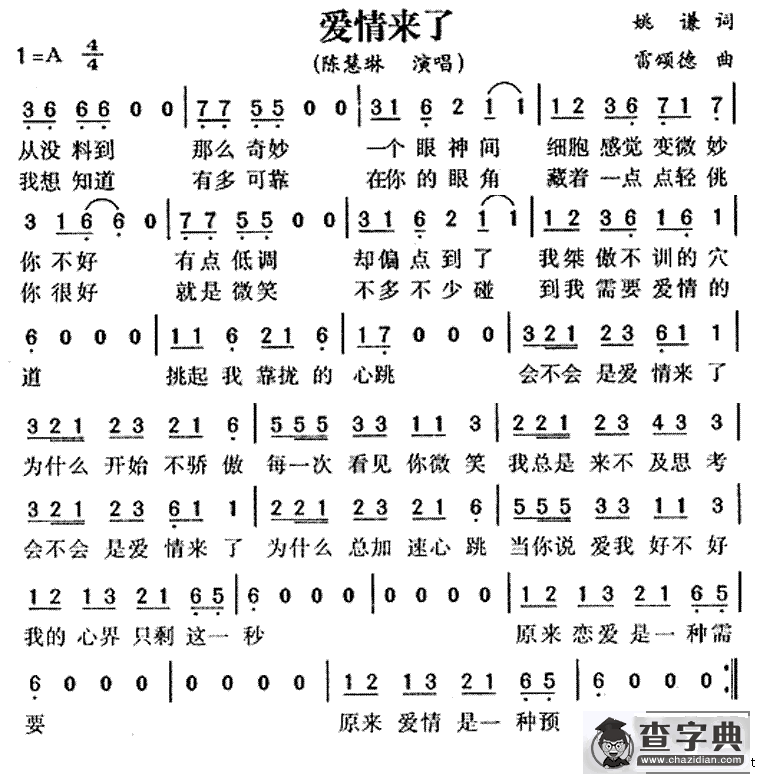 爱情来了
姚 谦 词
1=A 4/4
(陈慧琳 演唱)
雷颂德 曲
36 66 0 0 | 77 55 0 0 | 31 6 2 1 1 | 12 36 71 7
从没料到 那么奇妙 一个眼神间 细胞感觉变微妙
我想知道 有多可靠 在你的眼角 藏着一点点轻佻
3 16 6 0 | 77 55 0 0 | 31 6 2 1 1 | 12 36 16 1
你不好 有点低调 却偏点到了 我桀傲不训的穴
你很好 就是微笑 不多不少碰 到我需要爱情的
6 0 0 0 | 11 6 21 6 | 17 0 0 0 | 321 23 61 1
道 挑起我靠拢的心跳 会不会是爱情来了
321 23 21 6 | 555 33 11 3 | 221 23 43 3
为什么开始不骄傲 每一次看见你微笑 我总是来不及思考
321 23 61 1 | 221 23 21 6 | 555 33 11 3
会不会是爱情来了 为什么总加速心跳 当你说爱我好不好
12 13 21 65 | 6 0 0 0 | 0 0 0 0 | 12 13 21 65
我的心界只剩这一秒 原来恋爱是一种需
6 0 0 0 | 0 0 0 0 | 12 13 21 65 | 6 0 0 0 :||
要 原来爱情是一种预
查字典
www.chazidian.com
t